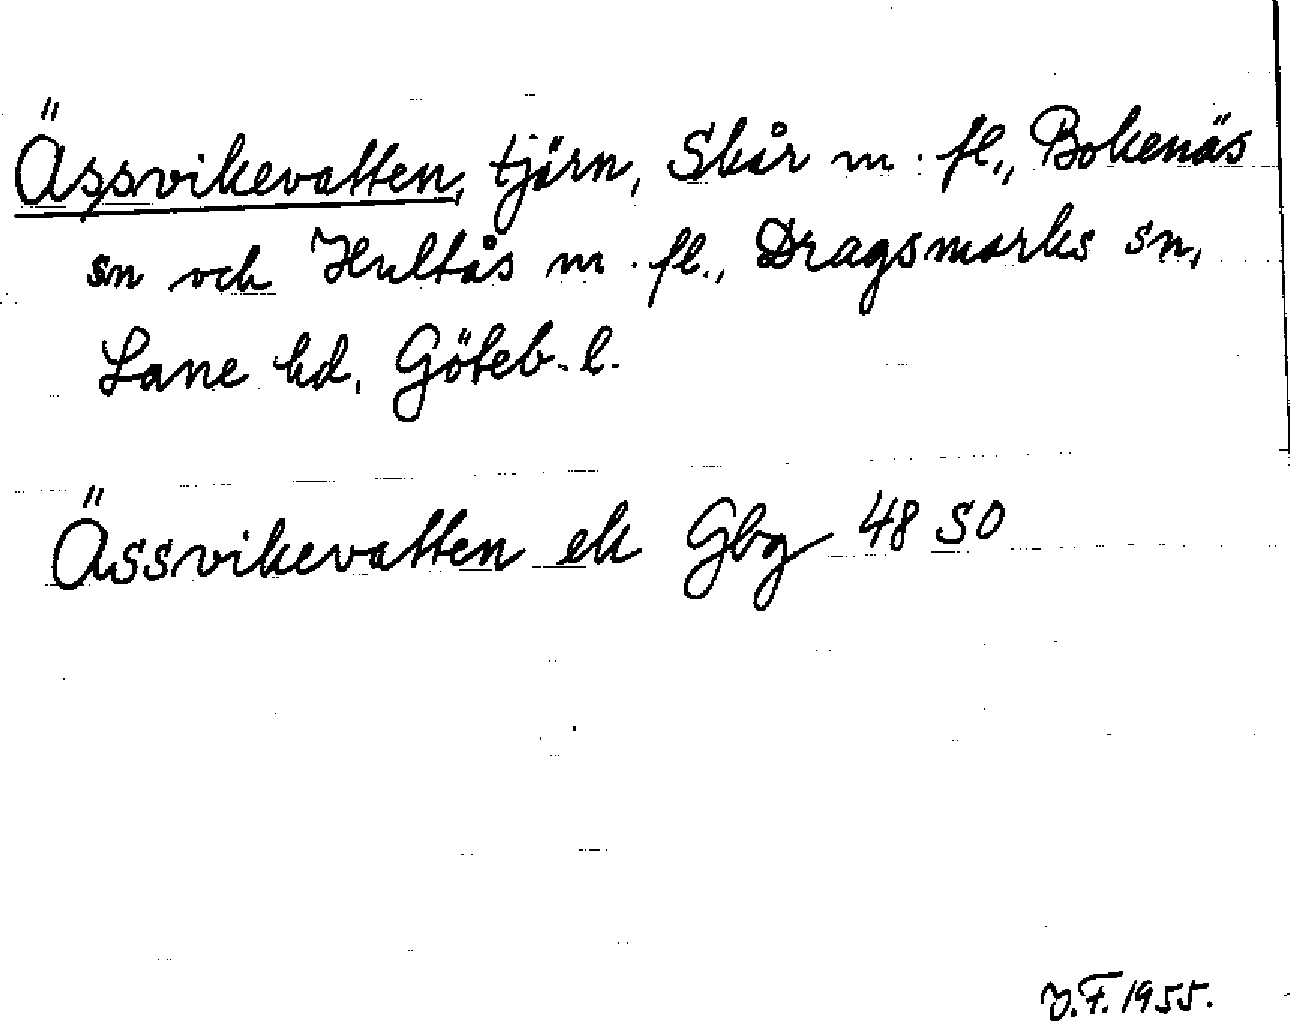 Ässvikevatten, tjärn, Skår m. fl., Bokenäs
sn och Hultås m. fl., Dragsmarks sn,
Lane hd, Göteb. l.
Ässvikevatten ek Gbg 48 SO
J.F. 1955.